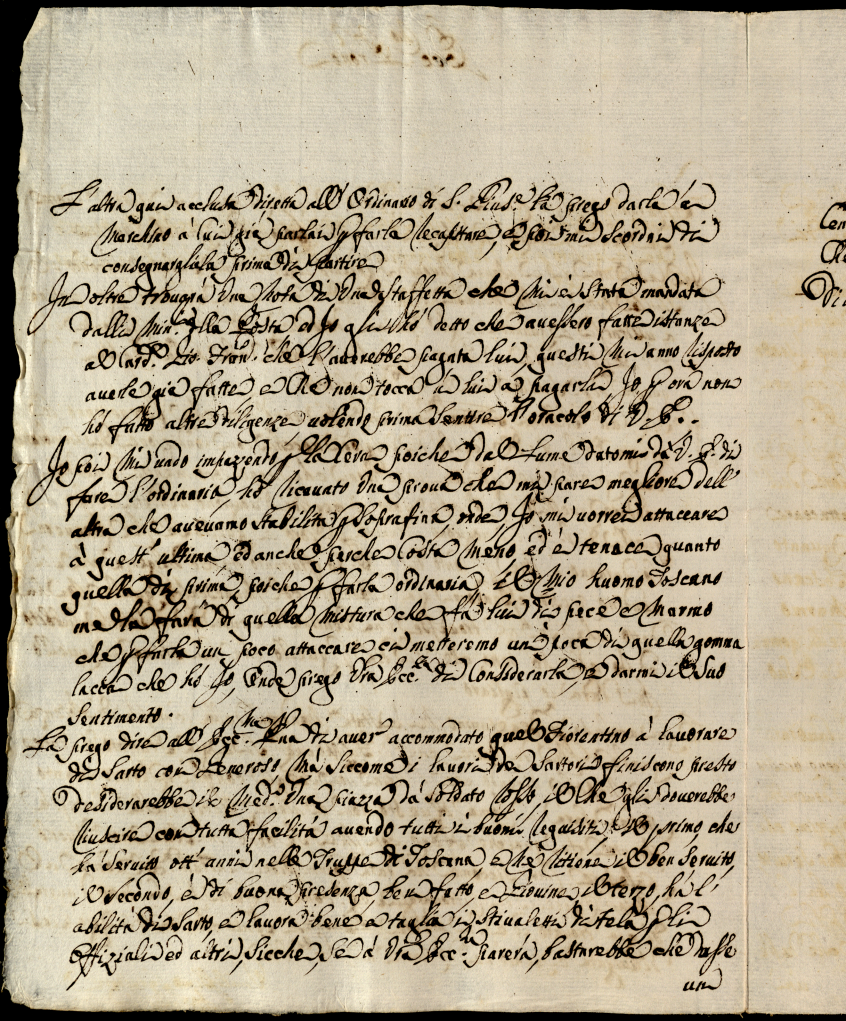 L'altra qui acclusa diretta all'Ordinario di S. Pius.e la priego darla à
Marchino à cui già parlai p farla recapitare, e poi mi scordai di
consegnarglela prima di partire
In oltre trovarà una nota di una staffetta che mi è stata mandata
dalli Min.i della Posta ed Io gli hò detto che avessero fatte istanze
al Card.e che l'averebbe pagata lui, questi mi anno risposto
averle già fatte, e che non tocca à lui à pagarli Io p ora non
hò fatto altre diligenze volendo prima sentire l'oracolo di V. E.
Io poi mi vado impazzendo p la Cera poiche dal lume datomi da V. E. di
fare l'ordinaria, hò ricavato una prova che mi pare megliore dell'
altra che avevamo stabilita p soprafina, onde Io mi vorrei attaccare
à quest'ultima, ed anche perche Costa meno ed è tenace quanto
quella di prima, poiche p farla ordinaria, il mio huomo Toscano
me la farà di quella mistura che fà lui di pece e Marmo
che p farla un poco attaccare ci metteremo un poca di quella gomma
lacca che hò Io, Onde priego Vra Ecc.za di Considerarla, e darmi il suo
sentimento.
La priego dire all' Ecc.ma Pna di aver accommodato quel Fiorentino à lavorare
di Sarto con Generoso Mà siccome i lavori de Sartori finiscono presto
desiderarebbe il Med.o una piazza da soldato Rosso, il che gli doverebbe
riuscire con tutta facilità avendo tutti i buoni requisiti, il primo che
ha servito ott' anni nelle Truppe di Toscana, e ne ritiene il ben servito,
il secondo, è di buona presenza, ben fatto, e Giovine, il terzo, hà l'
abilità di Sarto, e lavora bene e taglia i Stivaletti di tela p li
Offiziali ed altri, sicche, se à Vra Ecc.za parerà, bastarebbe che dasse
un